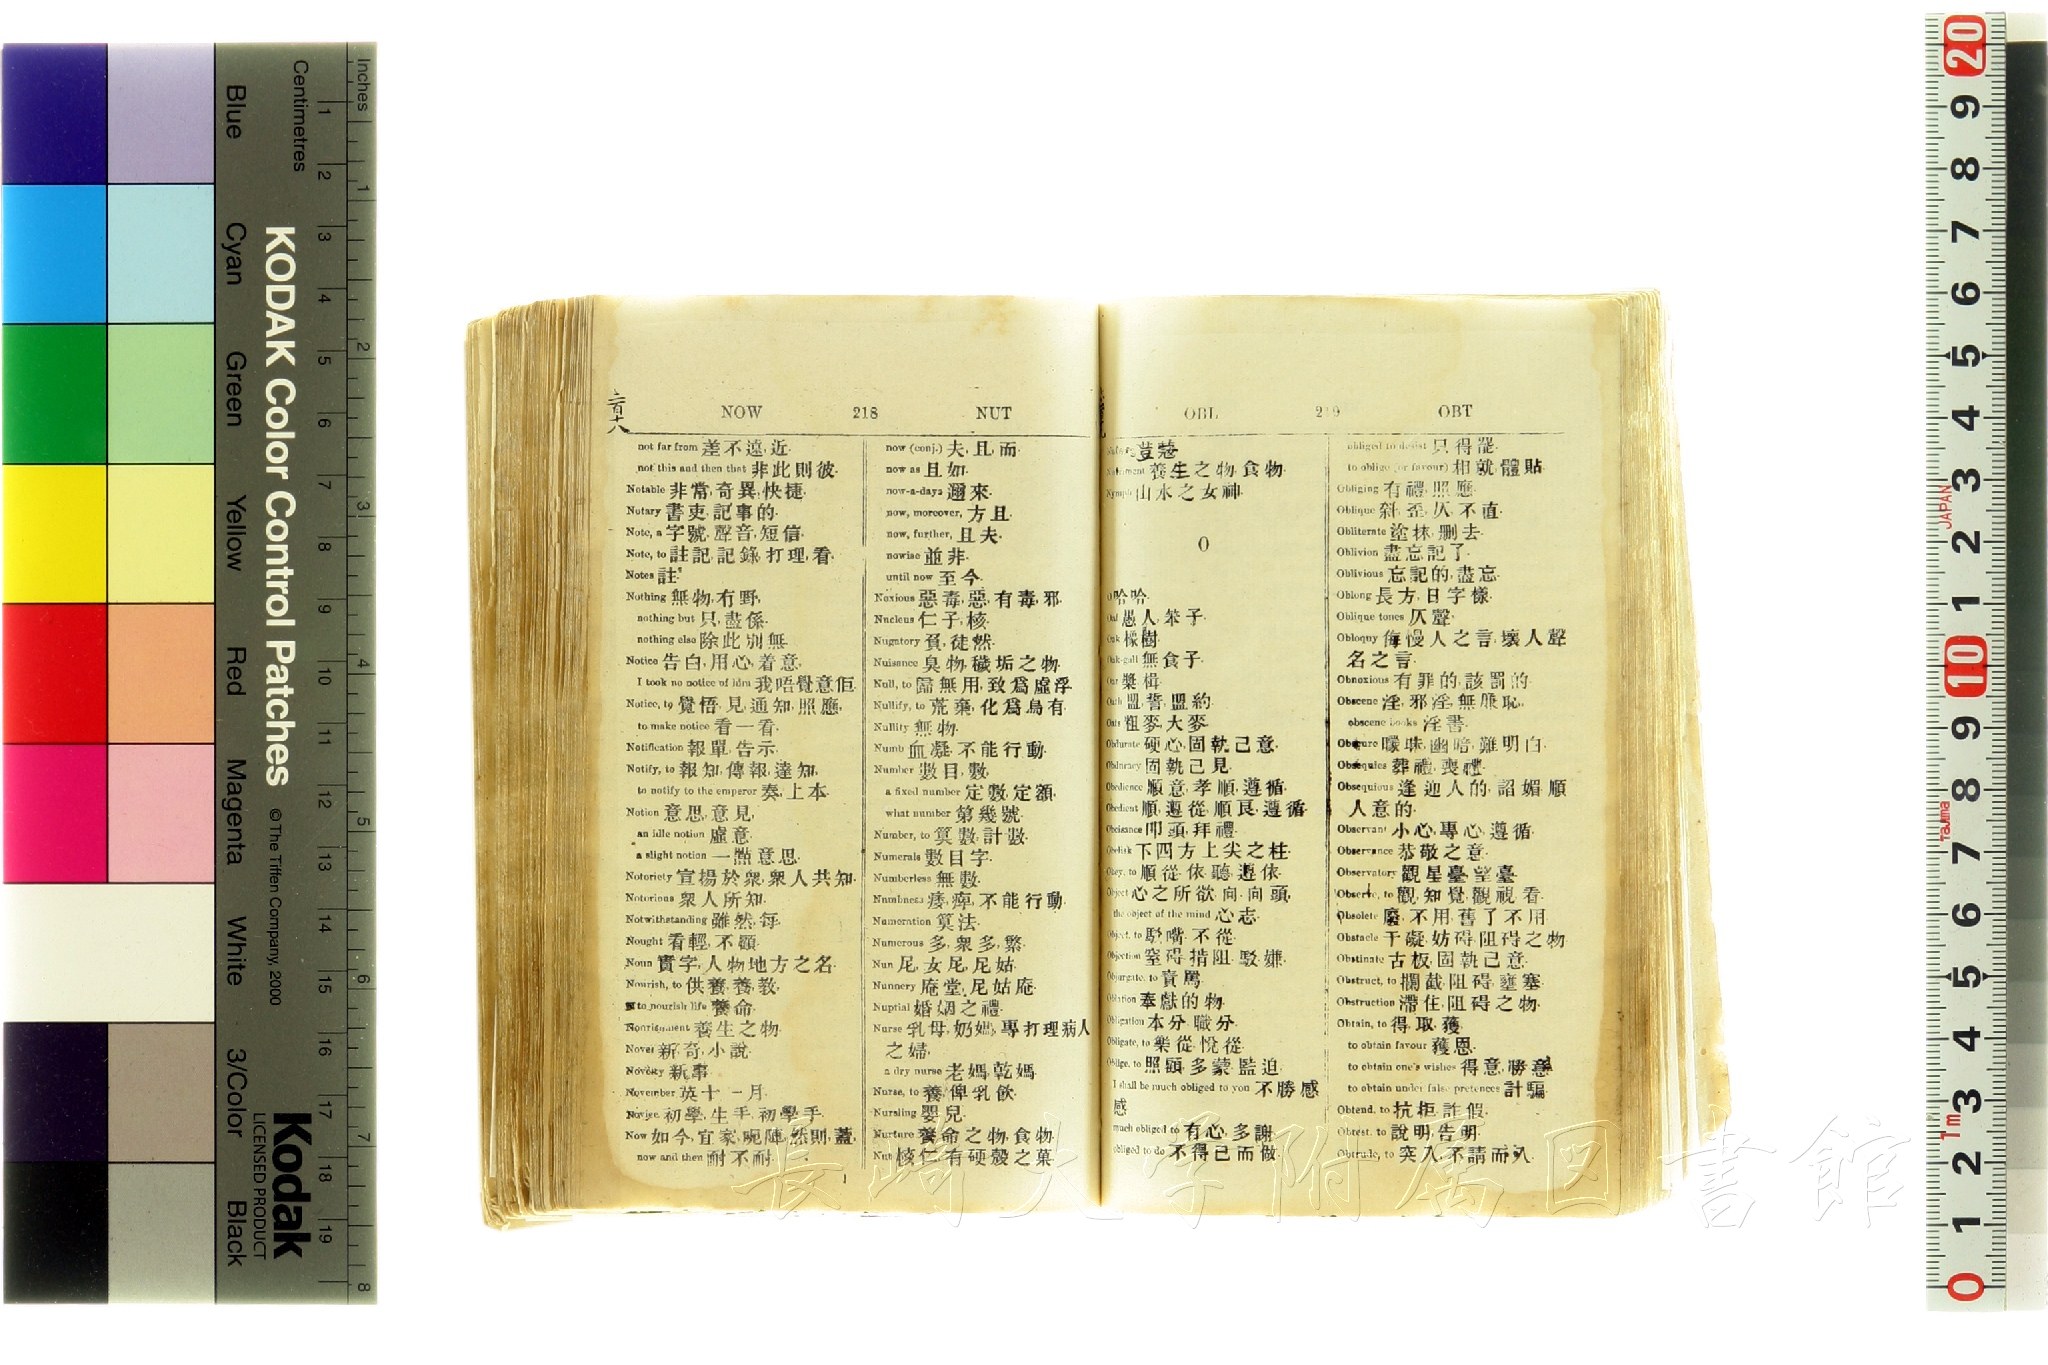 Inches
Centimetres
KODAK Color Control Patches
© The Tiffen Company, 2000
Kodak
LICENSED PRODUCT
Blue
Cyan
Green
Yellow
Red
Magenta
White
3/Color
Black
NOW 218 NUT
not far from 差不遠,近.
not this and then that 非此則彼.
Notable 非常,奇異,快捷.
Notary 書吏,記事的.
Note, a 字號,聲音,短信.
Note, to 註記,記錄,打理,看.
Notes 註.
Nothing 無物,冇野,
nothing but 只,盡係.
nothing else 除此別無.
Notice 告白,用心,着意.
I took no notice of him 我唔覺意佢.
Notice, to 覺悟,見,通知,照應,
to make notice 看一看.
Notification 報單,告示.
Notify, to 報知,傳報,達知,
to notify to the emperor 奏,上本.
Notion 意思,意見,
an idle notion 虛意.
a slight notion 一點意思.
Notoriety 宣楊於衆,衆人共知.
Notorious 衆人所知.
Notwithstanding 雖然,每.
Nought 看輕,不顧.
Noun 實字,人物地方之名.
Nourish, to 供養,養教.
to nourish life 養命.
Nourishment 養生之物.
Novel 新奇,小說.
Novelty 新事.
November 英十一月.
Novice 初學,生手,初學手.
Now 如今,宜家,呢陣,然則,蓋,
now and then 耐不耐.
now (conj.) 夫,且,而.
now as 且如.
now-a-days 邇來.
now, moreover, 方且.
now, further, 且夫.
nowise 並非.
until now 至今.
Noxious 惡毒,惡,有毒,邪.
Nucleus 仁子,核.
Nugatory 負,徒然.
Nuisance 臭物,穢垢之物.
Null, to 歸無用,致爲虛浮
Nullify, to 荒棄,化爲烏有.
Nullity 無物.
Numb 血凝,不能行動.
Number 數目,數,
a fixed number 定數,定額.
what number 第幾號.
Number, to 算數,計數.
Numerals 數目字.
Numberless 無數.
Numbness 痿,痺,不能行動.
Numeration 算法.
Numerous 多,衆多,繁.
Nun 尼,女尼,尼姑.
Nunnery 庵堂,尼姑庵.
Nuptial 婚姻之禮.
Nurse 乳母,奶媽,專打理病人
之婦,
a dry nurse 老媽,乾媽.
Nurse, to 養,俾乳飲.
Nursling 嬰兒.
Nurture 養命之物,食物.
Nut 核仁,有硬殼之菓.
OBL 219 OBT
荳蔻
養生之物,食物.
Nymph 山水之女神.
O
O 哈哈.
愚人,笨子.
Oak 橡樹.
Oak-gall 無食子.
Oar 槳,楫.
Oath 盟誓,盟約.
Oats 粗麥,大麥.
Obdurate 硬心,固執己意.
Obduracy 固執己見.
Obedience 順意,孝順,遵循.
Obedient 順,遵從,順良,遵循.
Obeisance 叩頭,拜禮.
Obelisk 下四方上尖之柱.
Obey, to 順從,依聽,遵依.
Object 心之所欲,向,向頭,
the object of the mind 心志.
Object, to 駁嘴,不從.
Objection 窒碍,揹阻,駁嫌.
Objurgate, to 責罵.
Oblation 奉獻的物.
Obligation 本分,職分.
Obligate, to 樂從,悅從.
Oblige, to 照顧,多蒙,監迫.
I shall be much obliged to you 不勝感
感
much obliged to 有心,多謝.
obliged to do 不得已而做.
obliged to desist 只得罷.
to oblige (or favour) 相就,體貼.
Obliging 有禮,照應.
Oblique 斜,歪,仄,不直.
Obliterate 塗抹,删去.
Oblivion 盡忘記了.
Oblivious 忘記的,盡忘.
Oblong 長方,日字樣.
Oblique tones 仄聲.
Obloquy 侮慢人之言,壞人聲
名之言.
Obnoxious 有罪的,該罰的.
Obscene 淫,邪淫,無廉恥,
obscene books 淫書.
Obscure 曚昧,幽暗,難明白.
Obsequies 葬禮,喪禮.
Obsequious 逢迎人的,諂媚,順
人意的.
Observant 小心,專心,遵循.
Observance 恭敬之意.
Observatory 觀星臺,望臺.
Observe, to 觀,知覺,觀視,看.
Obsolete 廢,不用,舊了不用.
Obstacle 干礙,妨碍,阻碍之物.
Obstinate 古板,固執己意.
Obstruct, to 攔截,阻碍,壅塞.
Obstruction 滯住,阻碍之物.
Obtain, to 得,取,獲.
to obtain favour 獲恩.
to obtain one's wishes 得意,勝意.
to obtain under false pretences 計騙.
Obtend, to 抗拒,詐假.
Obtest, to 說明,告明.
Obtrude, to 突入,不請而入.
長崎大学附属図書館
JAPAN
Tajima
1m